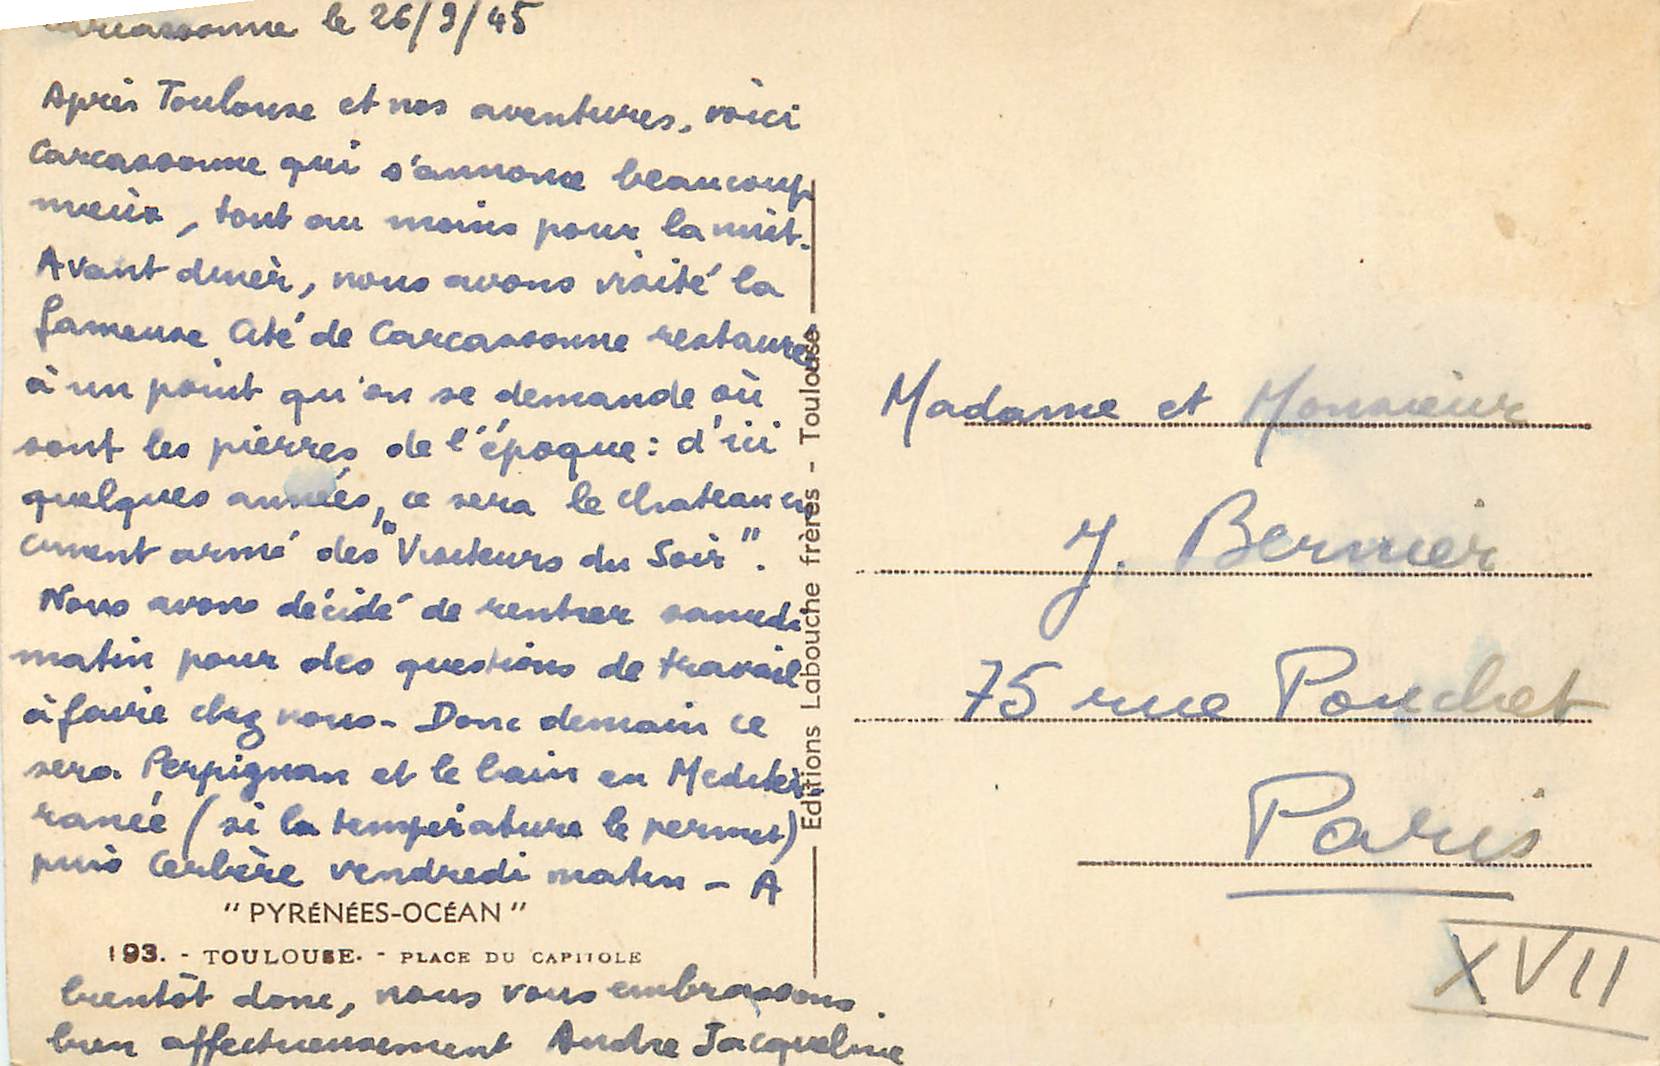 Carcassonne le 26/9/45
Après Toulouse et nos aventures, voici
Carcassonne qui s'annonce beaucoup
mieux, tout au moins pour la nuit.
Avant diner, nous avons visité la
fameuse Cité de Carcassonne restaurée
à un point qu'on se demande où
sont les pierres de l'époque : d'ici
quelques années, ce sera le chateau en
ciment armé des "Visiteurs du Soir".
Nous avons décidé de rentrer samedi
matin pour des questions de travail
à faire chez nous - Donc demain ce
sera Perpignan et le bain en Méditer-
ranée (si la température le permet)
puis Cerbère vendredi matin - A
"PYRÉNÉES-OCÉAN"
193. - TOULOUSE. - PLACE DU CAPITOLE
bientôt donc, nous vous embrassons
bien affectueusement Andre Jacqueline
Editions Labouche frères - Toulouse
Madame et Monsieur
J. Bernier
75 rue Pouchet
Paris
XVII